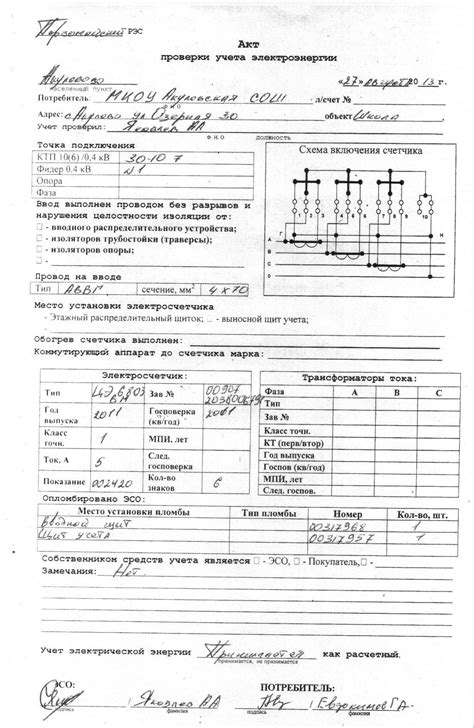 Первомайский РЭС
Акт
проверки учета электроэнергии
Акулово
населенный пункт
«27» августа 2013 г.
Потребитель: МКОУ Акуловская СОШ л/счет №
Ф И О
Адрес: с Акулово ул Озерная 30 объект Школа
Учет проверил: Яковлев ВА
Ф.И.О должность
Точка подключения
КТП 10(6) /0,4 кВ 30-10 7
Фидер 0,4 кВ №1
Опора
Фаза
Схема включения счетчика
1 2 3 4 5 6 7 8 9 10 11
Г Н
А
В
С
0
Ввод выполнен проводом без разрывов и
нарушения целостности изоляции от:
□ - вводного распределительного устройства;
□ - изоляторов трубостойки (траверсы);
□ - изоляторов опоры;
□ -
Провод на вводе
Тип АВВГ сечение, мм² 4х70
Место установки электросчетчика
- Этажный распределительный щиток; □ - выносной щит учета;
□ -
Обогрев счетчика выполнен:
Коммутирующий аппарат до счетчика марка:
Электросчетчик:
Тип ЦЭ6803 Зав № 00907
Год выпуска 2011 Госповерка (кв/год) 2011
Класс точн. 1 МПИ, лет
Ток. А 5 След. госповерка
Показание 002420 Кол-во знаков 6
Трансформаторы тока:
Фаза А В С
Тип
Зав №
Класс точн.
КТ (перв/втор)
Год выпуска
Госпов (кв/год)
МПИ, лет
След. госпов.
Опломбировано ЭСО:
Место установки пломбы Тип пломбы Номер Кол-во, шт.
Вводной щит 00317968 1
Щит учета 00317957 1
Собственником средств учета является □ - ЭСО, □ - Покупатель, □ -
Замечания: Нет.
Учет электрической энергии Принимается как расчетный.
принимается, не принимается
ЭСО: ПОТРЕБИТЕЛЬ:
Яковлев ВА Евдокимов Г.А.
подпись фамилия подпись фамилия